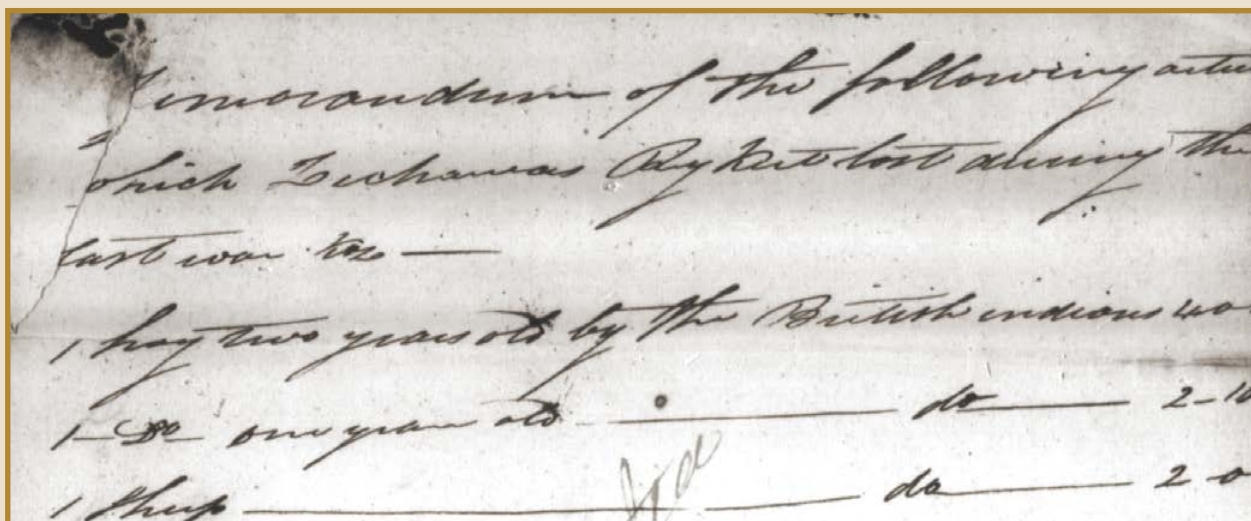 Memorandum of the following
which Zechariah Ryket lost during the
last war Viz —
1 hog two years old by the British indians
1 – Do one year old — do — 2–10
1 Sheep — do — 2–0